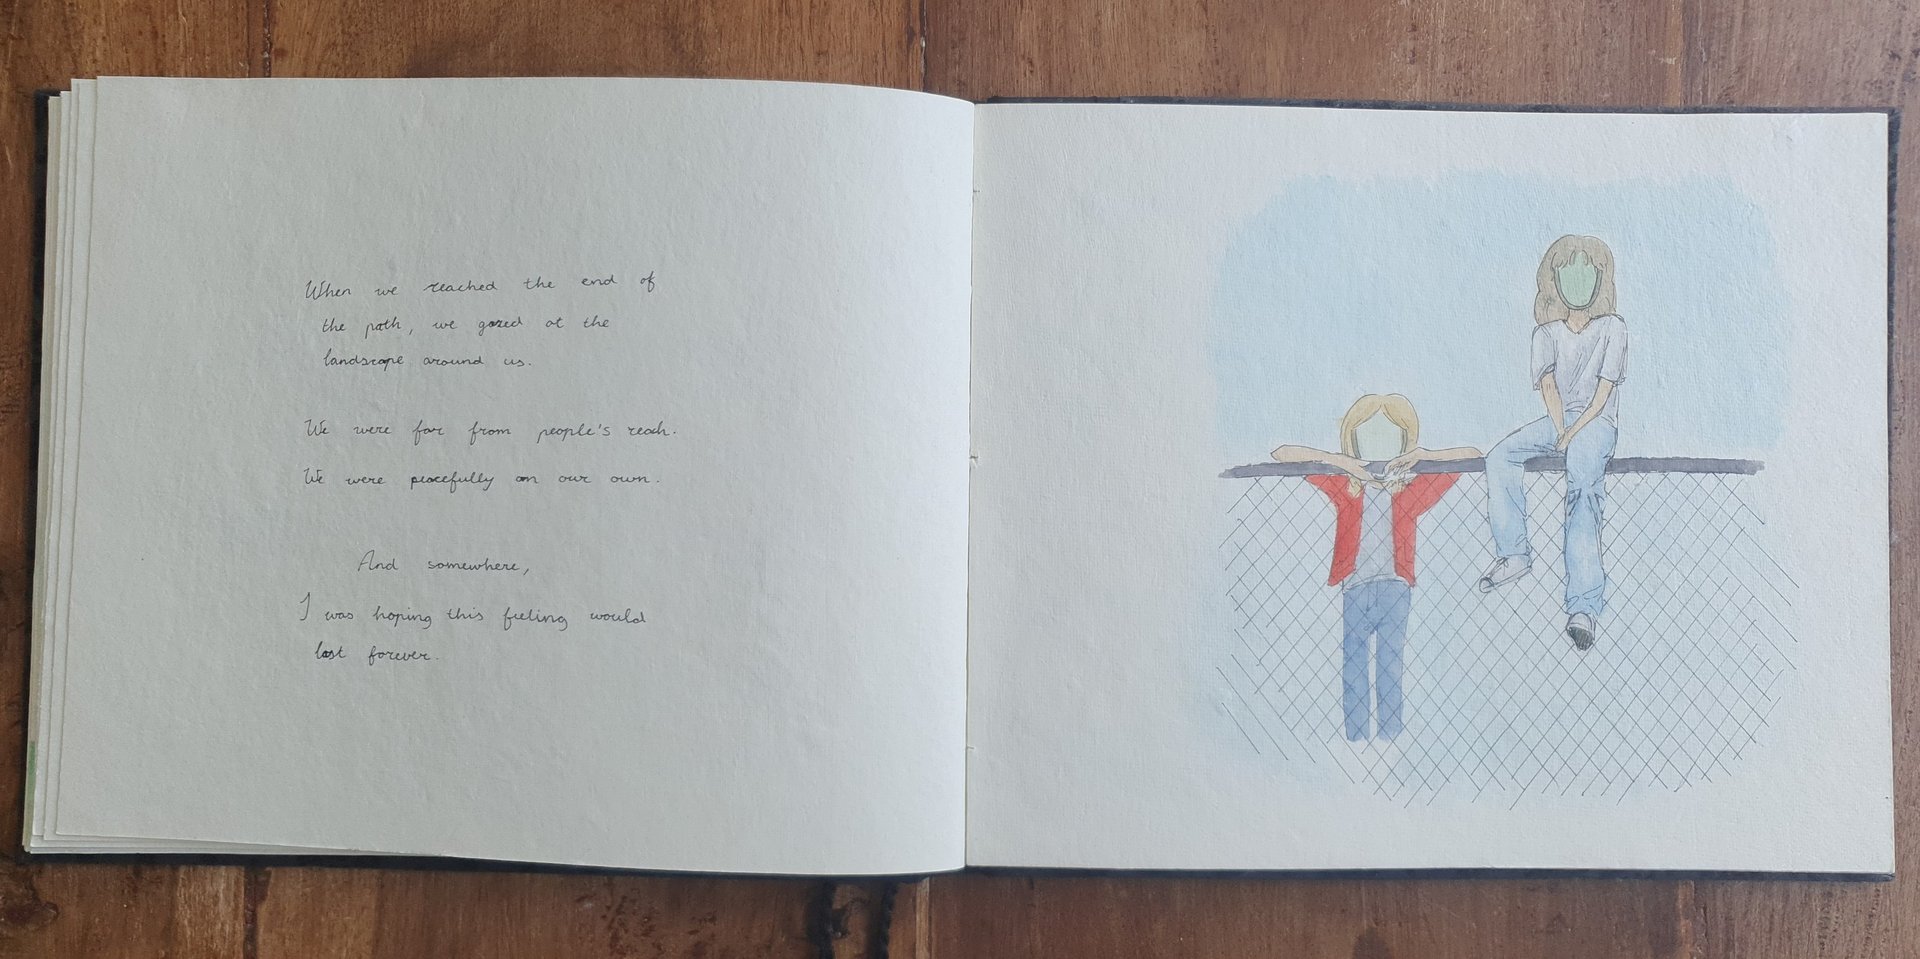 When we reached the end of
the path, we gazed at the
landscape around us.
We were far from people's reach.
We were peacefully on our own.
And somewhere,
I was hoping this feeling would
last forever.